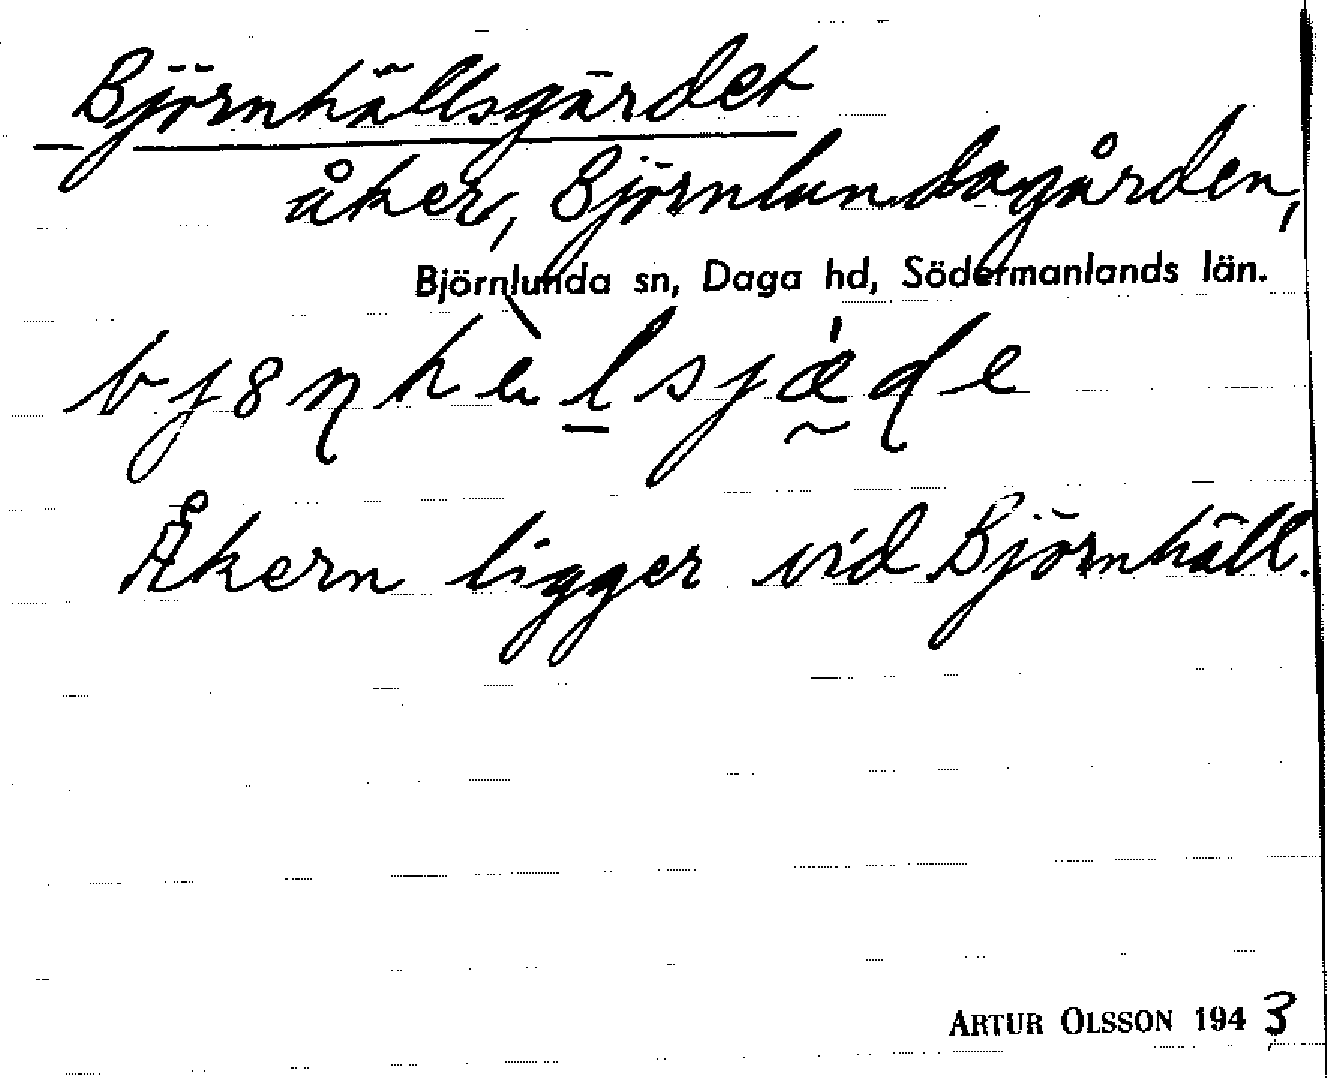 Björnhällsgärdet
åker, Björnlundagården,
Björnlunda sn, Daga hd, Södermanlands län.
bj8ɳhὲl̲sjǽ̰ɖe
Åkern ligger vid Björnhäll.
ARTUR OLSSON 1943